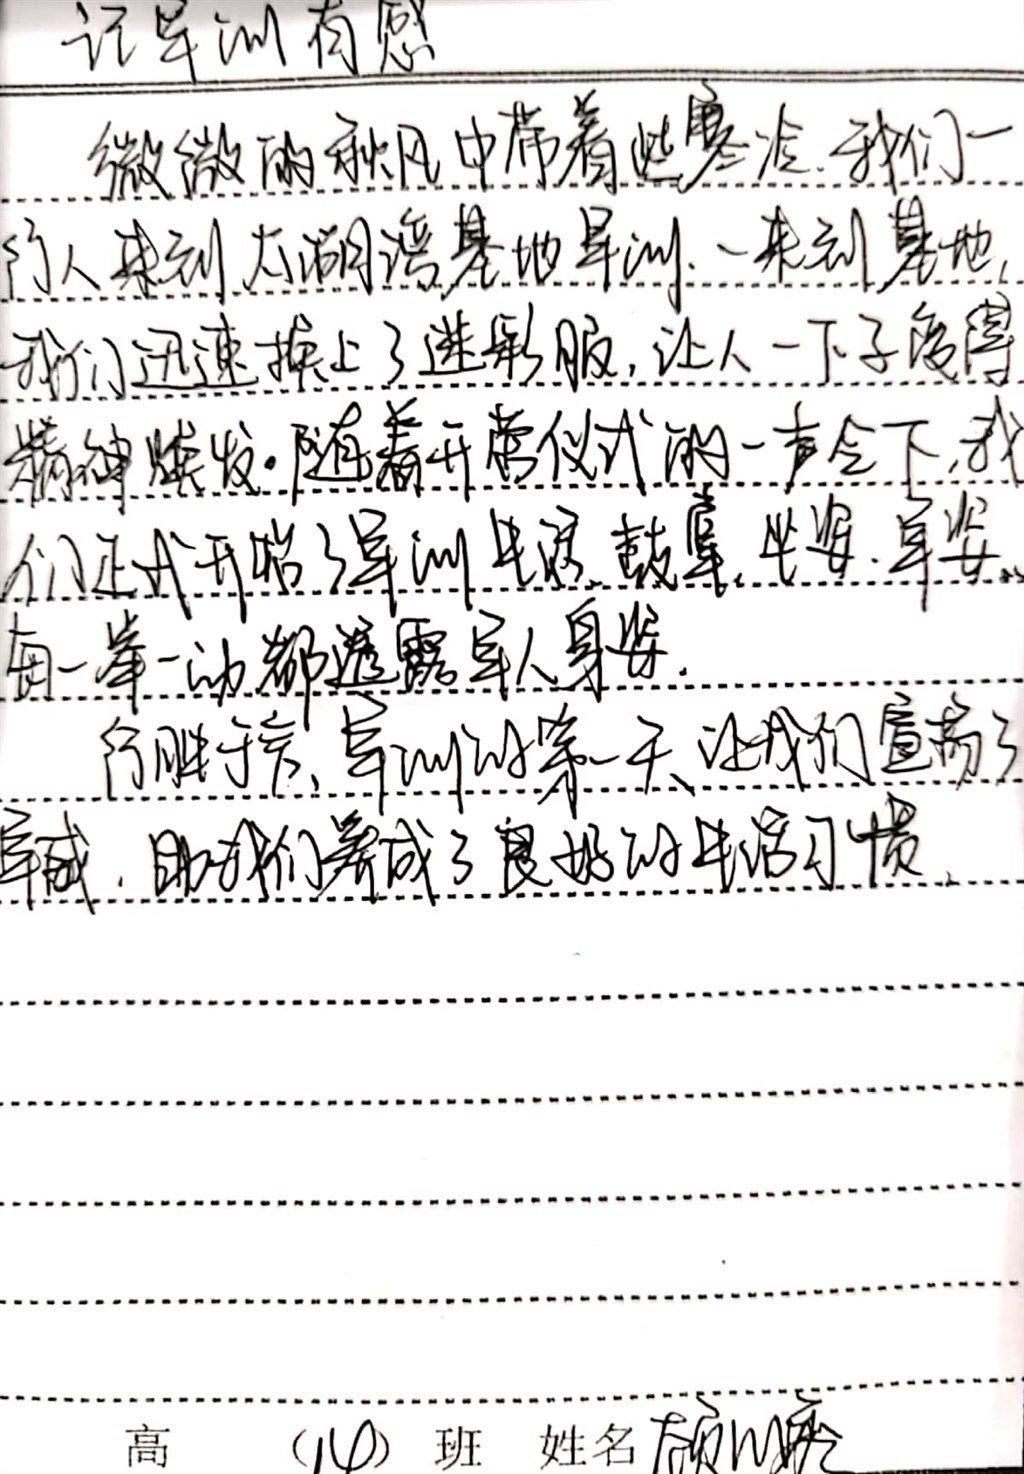 记军训有感
微微的秋风中带着些寒冷.我们一
行人来到太湖湾基地军训.一来到基地,
我们迅速换上了迷彩服,让人一下子变得
精神焕发.随着开营仪式的一声令下,我
们正式开始了军训生活.鼓掌,坐姿.军姿..
每一举一动都透露军人身姿.
行胜于言、军训的第一天、让我们
了
军威.助我们养成了良好的生活习惯.
高 (14) 班 姓名